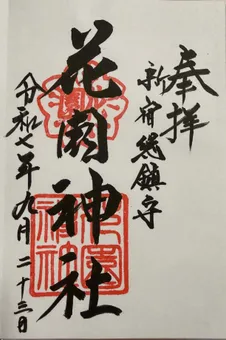 奉拝
新宿総鎮守
花園神社
令和七年九月二十三日